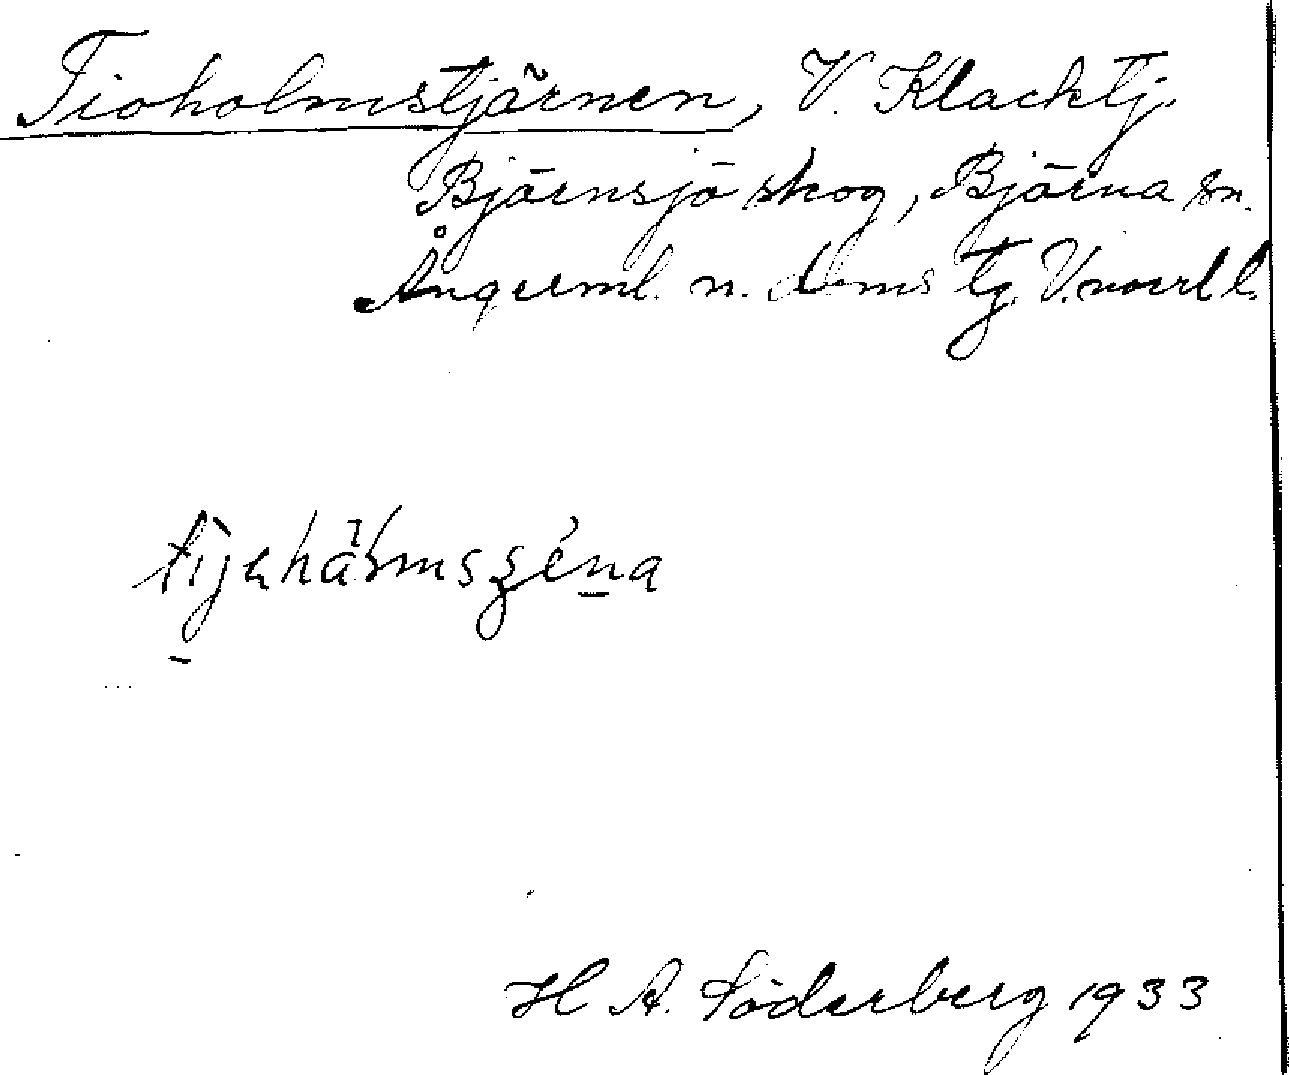 Tioholmstjärnen, V. Klacktj.
Björnsjö skog, Björna sn.
Ångerml. n. doms tg. V.norrl l.
H A. Söderberg 1933